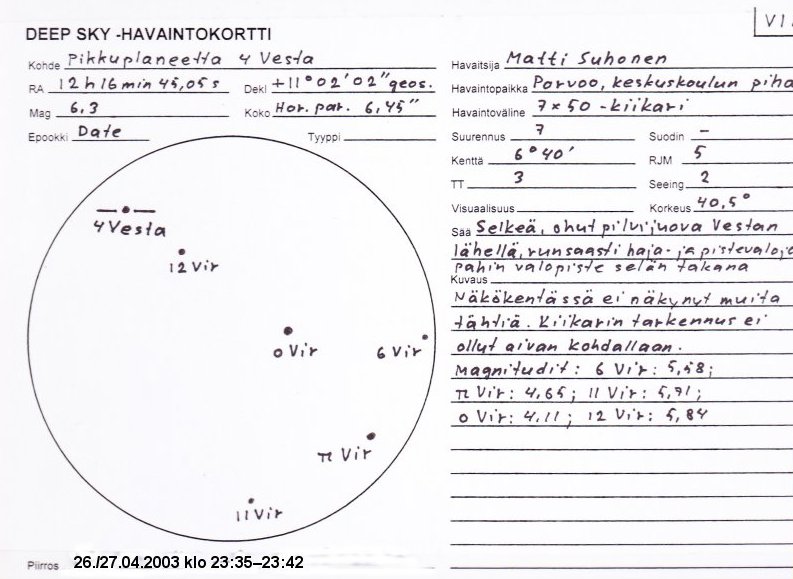 VI
DEEP SKY -HAVAINTOKORTTI
Kohde Pikkuplaneetta 4 Vesta
RA 12 h 16 min 45,05 s Dekl +11° 02' 02" geos.
Mag 6,3 Koko Hor. par. 6,45"
Epookki Date Tyyppi
4 Vesta
12 Vir
o Vir
6 Vir
π Vir
11 Vir
Piirros 26./27.04.2003 klo 23:35–23:42
Havaitsija Matti Suhonen
Havaintopaikka Porvoo, keskuskoulun piha
Havaintoväline 7x50 -kiikari
Suurennus 7 Suodin –
Kenttä 6° 40' RJM 5
TT 3 Seeing 2
Visuaalisuus Korkeus 40,5°
Sää Selkeä, ohut pilvijuova Vestan
lähellä, runsaasti haja- ja pistevaloja
pahin valopiste selän takana
Kuvaus
Näkökentässä ei näkynyt muita
tähtiä. Kiikarin tarkennus ei
ollut aivan kohdallaan.
Magnitudit: 6 Vir: 5,58;
π Vir: 4,65; 11 Vir: 5,71;
o Vir: 4,11; 12 Vir: 5,84